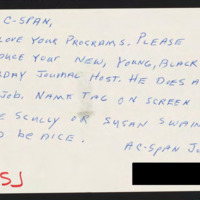 C-SPAN,
LOVE YOUR PROGRAMS. PLEASE
DUCE YOUR NEW, YOUNG, BLACK
DAY JOURNAL HOST. HE DOES A
JOB. NAME TAG ON SCREEN
E SCULLY OR SUSAN SWAIN
D BE NICE.
A C-SPAN JU
SJ